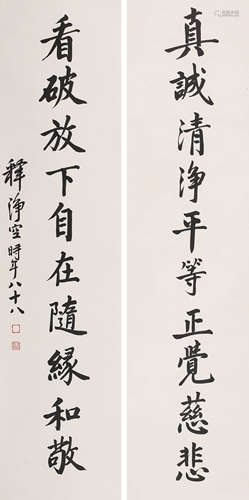 真誠清淨平等正覺慈悲
看破放下自在隨緣和敬
釋淨空時年八十八